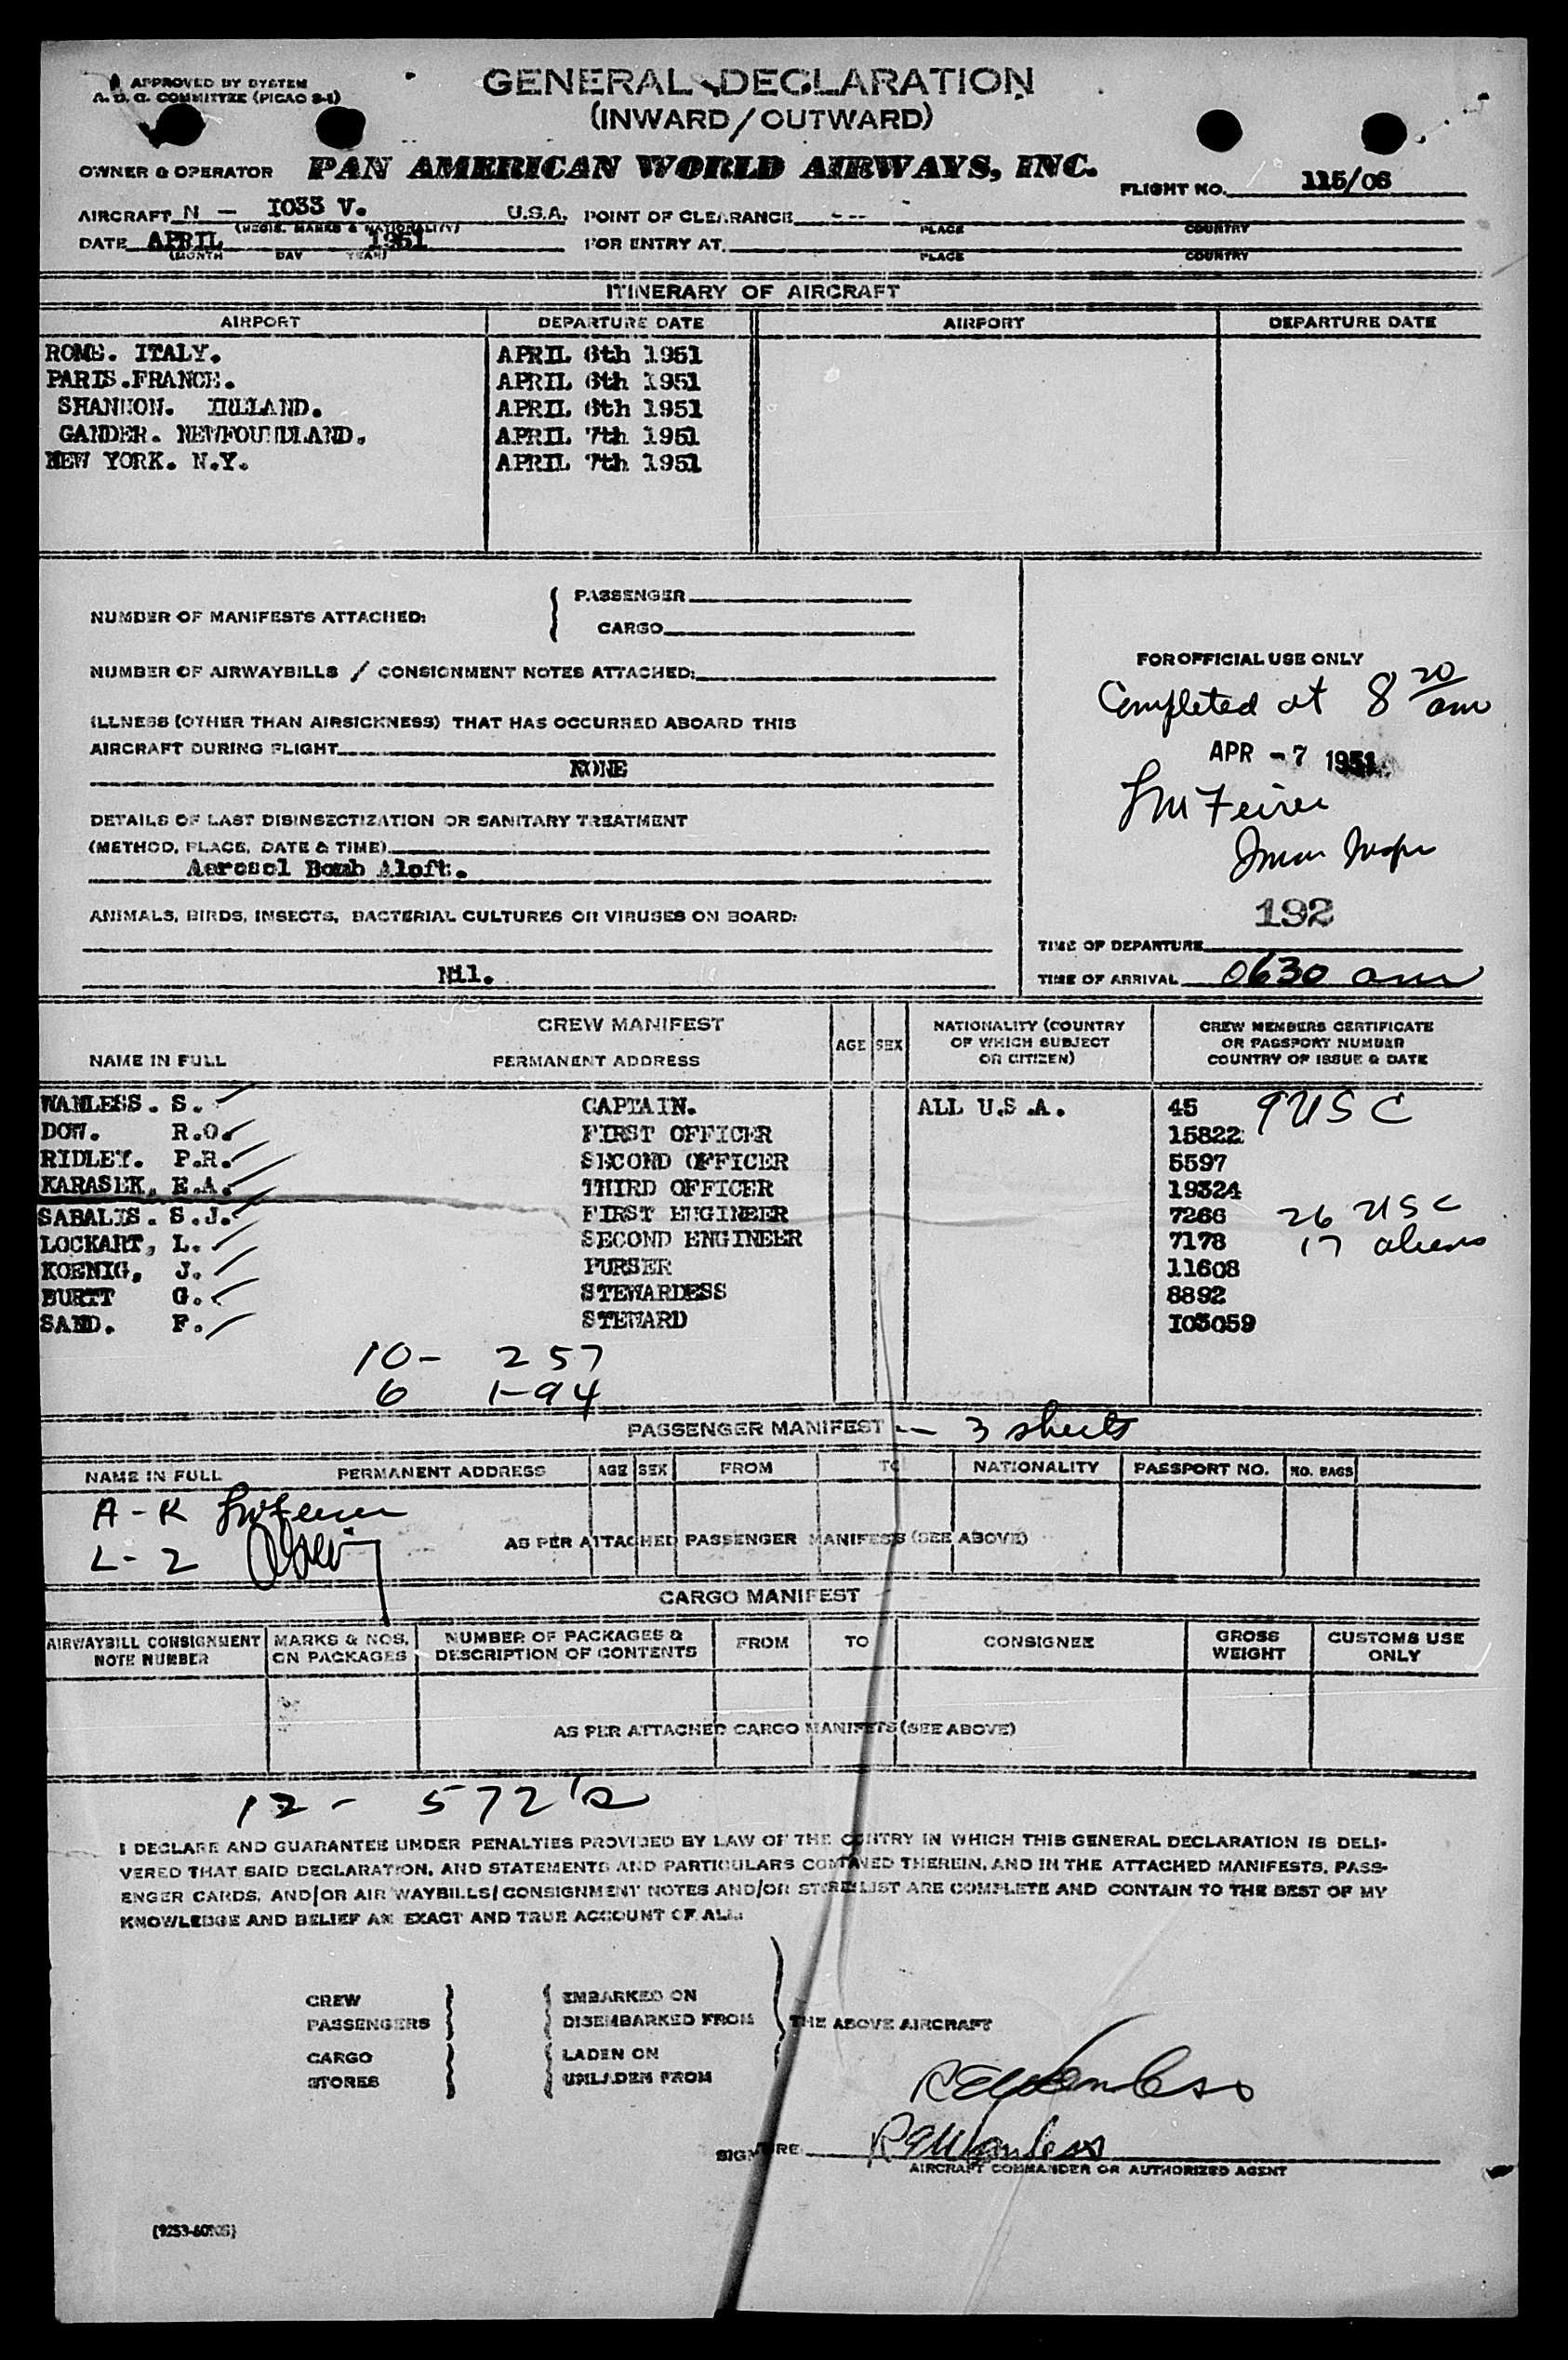 APPROVED BY SYSTEM
A. D. G. COMMITTEE (PICAO S-1)
GENERAL DECLARATION
(INWARD/OUTWARD)
OWNER & OPERATOR PAN AMERICAN WORLD AIRWAYS, INC.
FLIGHT NO. 115/06
AIRCRAFT N - I033 V. U.S.A. POINT OF CLEARANCE ---
(REGIS. MARKS & NATIONALITY) PLACE COUNTRY
DATE APRIL 1951 FOR ENTRY AT
(MONTH DAY YEAR) PLACE COUNTRY
ITINERARY OF AIRCRAFT
AIRPORT DEPARTURE DATE AIRPORT DEPARTURE DATE
ROME. ITALY. APRIL 6th 1951
PARIS.FRANCE. APRIL 6th 1951
SHANNON. IRELAND. APRIL 6th 1951
GANDER. NEWFOUNDLAND. APRIL 7th 1951
NEW YORK. N.Y. APRIL 7th 1951
NUMBER OF MANIFESTS ATTACHED: { PASSENGER
CARGO
NUMBER OF AIRWAYBILLS / CONSIGNMENT NOTES ATTACHED:
ILLNESS (OTHER THAN AIRSICKNESS) THAT HAS OCCURRED ABOARD THIS
AIRCRAFT DURING FLIGHT
NONE
DETAILS OF LAST DISINSECTIZATION OR SANITARY TREATMENT
(METHOD, PLACE, DATE & TIME)
Aerosol Bomb Aloft.
ANIMALS, BIRDS, INSECTS, BACTERIAL CULTURES OR VIRUSES ON BOARD:
Nil.
FOR OFFICIAL USE ONLY
Completed at 8 20 am
APR -7 1951
192
TIME OF DEPARTURE
TIME OF ARRIVAL 0630 am
CREW MANIFEST
NAME IN FULL PERMANENT ADDRESS AGE SEX NATIONALITY (COUNTRY OF WHICH SUBJECT OR CITIZEN) CREW MEMBERS CERTIFICATE OR PASSPORT NUMBER COUNTRY OF ISSUE & DATE
WANLESS. S. CAPTAIN. ALL U.S.A. 45 9 USC
DOW. R.O. FIRST OFFICER 15822
RIDLEY. P.R. SECOND OFFICER 5597
KARASEK, E.A. THIRD OFFICER 19324
SABALIS. S.J. FIRST ENGINEER 7266 26 USC
LOCKART, L. SECOND ENGINEER 7178 17 aliens
KOENIG, J. PURSER 11608
BURTT G. STEWARDESS 8892
SAND. F. STEWARD I03059
10- 257
6 1-94
PASSENGER MANIFEST -- 3 sheets
NAME IN FULL PERMANENT ADDRESS AGE SEX FROM TO NATIONALITY PASSPORT NO. NO. BAGS
A-K
L-Z
AS PER ATTACHED PASSENGER MANIFESS (SEE ABOVE)
CARGO MANIFEST
AIRWAYBILL CONSIGNMENT NOTE NUMBER MARKS & NOS. ON PACKAGES NUMBER OF PACKAGES & DESCRIPTION OF CONTENTS FROM TO CONSIGNEE GROSS WEIGHT CUSTOMS USE ONLY
AS PER ATTACHED CARGO MANIFETS (SEE ABOVE)
12 - 572's
I DECLARE AND GUARANTEE UNDER PENALTIES PROVIDED BY LAW OF THE CONTRY IN WHICH THIS GENERAL DECLARATION IS DELI-
VERED THAT SAID DECLARATION, AND STATEMENTS AND PARTICULARS CONTAINED THEREIN, AND IN THE ATTACHED MANIFESTS, PASS-
ENGER CARDS, AND/OR AIR WAYBILLS/CONSIGNMENT NOTES AND/OR STORE LIST ARE COMPLETE AND CONTAIN TO THE BEST OF MY
KNOWLEDGE AND BELIEF AN EXACT AND TRUE ACCOUNT OF ALL:
CREW EMBARKED ON
PASSENGERS DISEMBARKED FROM THE ABOVE AIRCRAFT
CARGO LADEN ON
STORES UNLADEN FROM
R E Wanless
SIGNATURE R E Wanless
AIRCRAFT COMMANDER OR AUTHORIZED AGENT